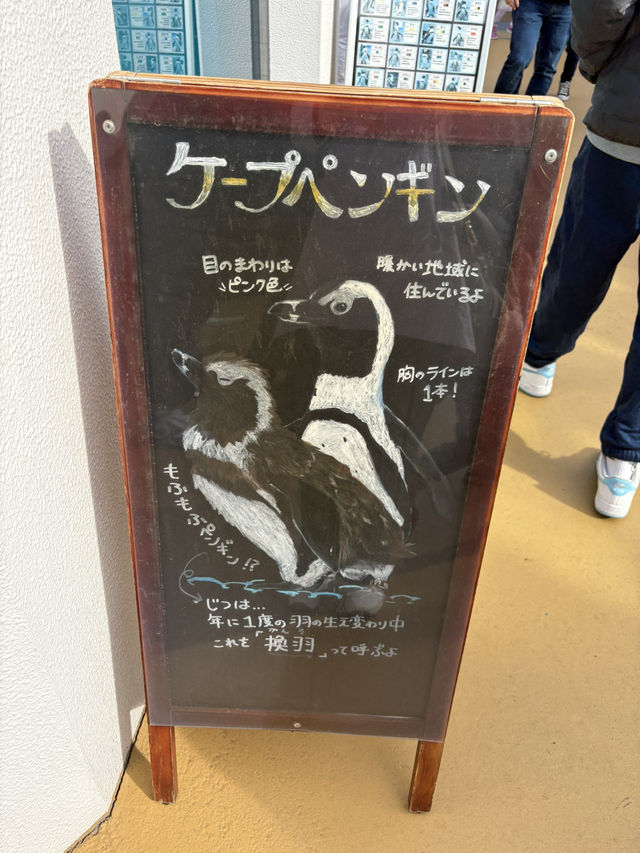 ケープペンギン
目のまわりは
ピンク色
暖かい地域に
住んでいるよ
胸のラインは
1本!
もふもふペンギン!?
じつは…
年に1度の羽の生え変わり中
かんう
これを「換羽」って呼ぶよ